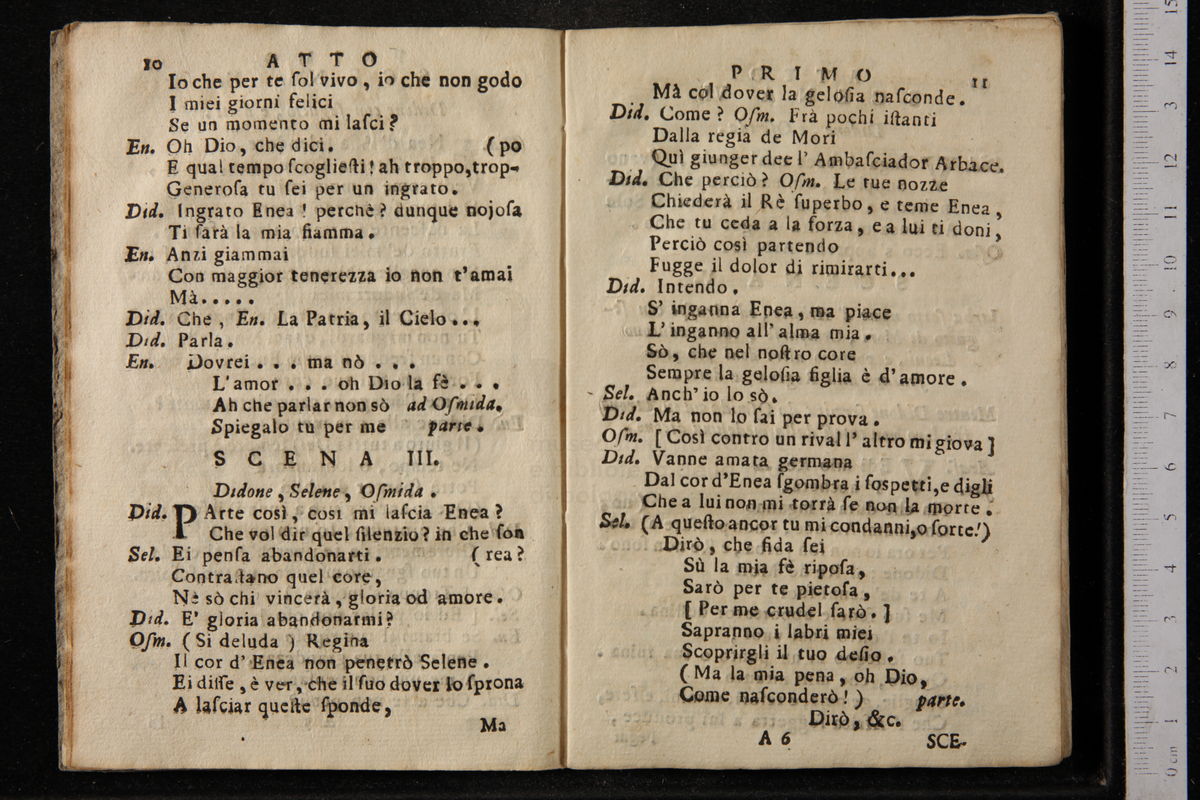 10 ATTO
Io che per te ſol vivo, io che non godo
I miei giorni felici
Se un momento mi laſci?
En. Oh Dio, che dici. (po
E qual tempo ſcoglieſti! ah troppo, trop-
Generoſa tu ſei per un ingrato.
Did. Ingrato Enea! perchè? dunque nojoſa
Ti farà la mia fiamma.
En. Anzi giammai
Con maggior tenerezza io non t'amai
Mà.....
Did. Che, En. La Patria, il Cielo...
Did. Parla.
En. Dovrei... ma nò...
L'amor... oh Dio la fè...
Ah che parlar non sò ad Oſmida.
Spiegalo tu per me parte.
SCENA III.
Didone, Selene, Oſmida.
Did. PArte così, così mi laſcia Enea?
Che vol dir quel ſilenzio? in che ſon
Sel. Ei penſa abandonarti. (rea?
Contraſtano quel core,
Nè sò chi vincerà, gloria od amore.
Did. E' gloria abandonarmi?
Oſm. (Si deluda) Regina
Il cor d' Enea non penetrò Selene.
Ei diſſe, è ver, che il ſuo dover lo ſprona
A laſciar queſte ſponde,
Ma
PRIMO 11
Mà col dover la geloſia naſconde.
Did. Come? Oſm. Frà pochi iſtanti
Dalla regia de Mori
Quì giunger dee l' Ambaſciador Arbace.
Did. Che perciò? Oſm. Le tue nozze
Chiederà il Rè ſuperbo, e teme Enea,
Che tu ceda a la forza, e a lui ti doni,
Perciò così partendo
Fugge il dolor di rimirarti...
Did. Intendo.
S' inganna Enea, ma piace
L' inganno all' alma mia.
Sò, che nel noſtro core
Sempre la geloſia figlia è d'amore.
Sel. Anch' io lo sò.
Did. Ma non lo ſai per prova.
Oſm. [Così contro un rival l' altro mi giova]
Did. Vanne amata germana
Dal cor d'Enea ſgombra i ſoſpetti, e digli
Che a lui non mi torrà ſe non la morte.
Sel. (A queſto ancor tu mi condanni, o ſorte!)
Dirò, che fida ſei
Sù la mia fè ripoſa,
Sarò per te pietoſa,
[Per me crudel ſarò.]
Sapranno i labri miei
Scoprirgli il tuo deſio.
(Ma la mia pena, oh Dio,
Come naſconderò!) parte.
Dirò, &c.
A 6 SCE-
0 cm 1 2 3 4 5 6 7 8 9 10 11 12 13 14 15